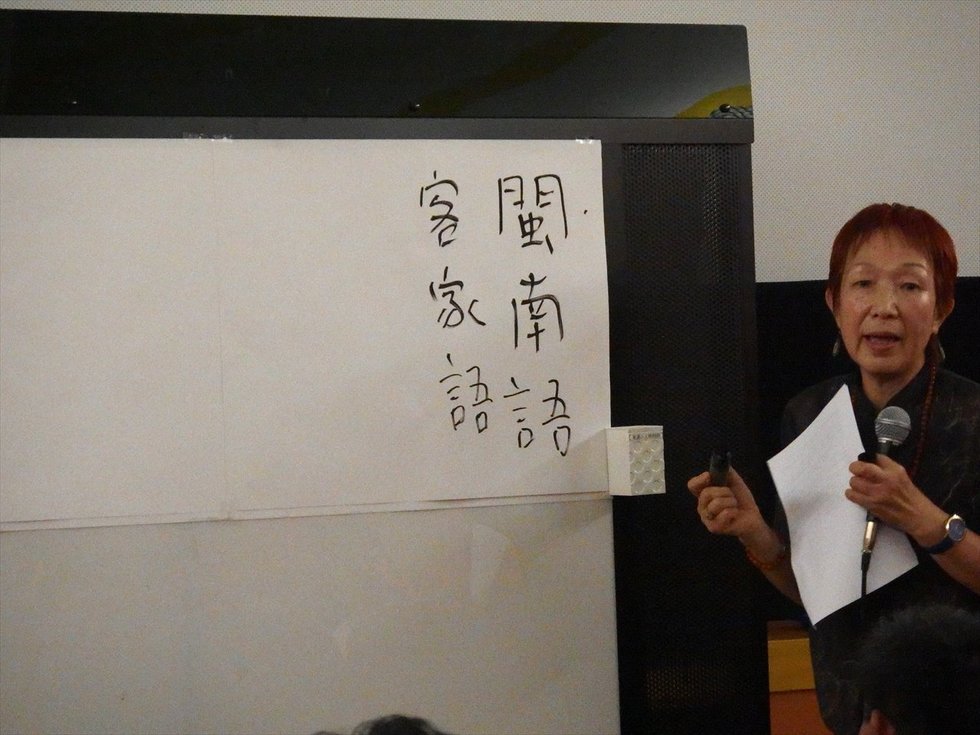 閩南語
客家語